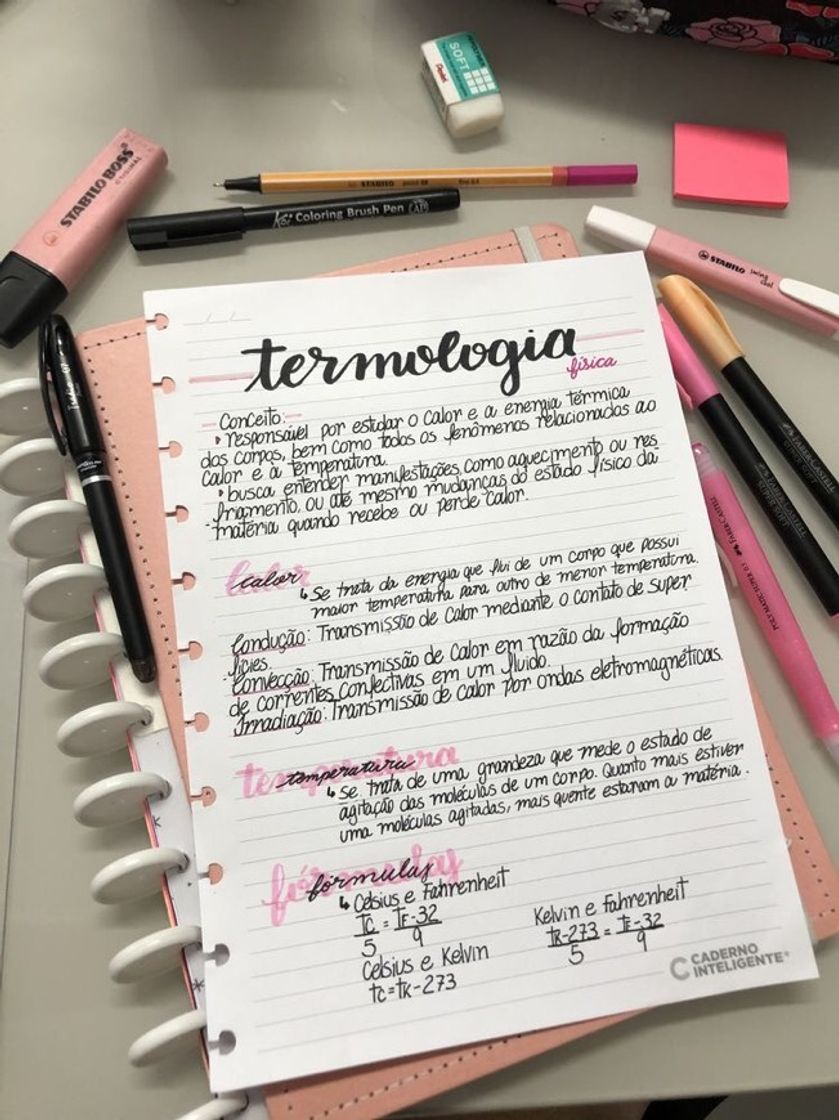 SOFT
Pentel
STABILO BOSS
ORIGINAL
STABILO point 88 fine 0.4
Koi Coloring Brush Pen AP
STABILO swing cool
FABER-CASTELL
FABER-CASTELL
FABER-CASTELL
termologia
física
Conceito:
responsável por estudar o calor e a energia térmica
dos corpos, bem como todos os fenômenos relacionados ao
calor e à temperatura.
busca entender manifestações como aquecimento ou res
-friamento, ou até mesmo mudanças do estado físico da
matéria quando recebe ou perde calor.
calor
↳ Se trata da energia que flui de um corpo que possui
maior temperatura para outro de menor temperatura.
Condução: Transmissão de calor mediante o contato de super
fícies.
Convecção: Transmissão de calor em razão da formação
de correntes confectivas em um fluido.
Irradiação: Transmissão de calor por ondas eletromagnéticas.
temperatura
↳ Se trata de uma grandeza que mede o estado de
agitação das moléculas de um corpo. Quanto mais estiver
uma moléculas agitadas, mais quente estaram a matéria.
fórmulas
↳ Celsius e Fahrenheit
Tc = TF-32
5 9
Celsius e Kelvin
tc=tk-273
Kelvin e Fahrenheit
tk-273 = tF-32
5 9
CADERNO
INTELIGENTE